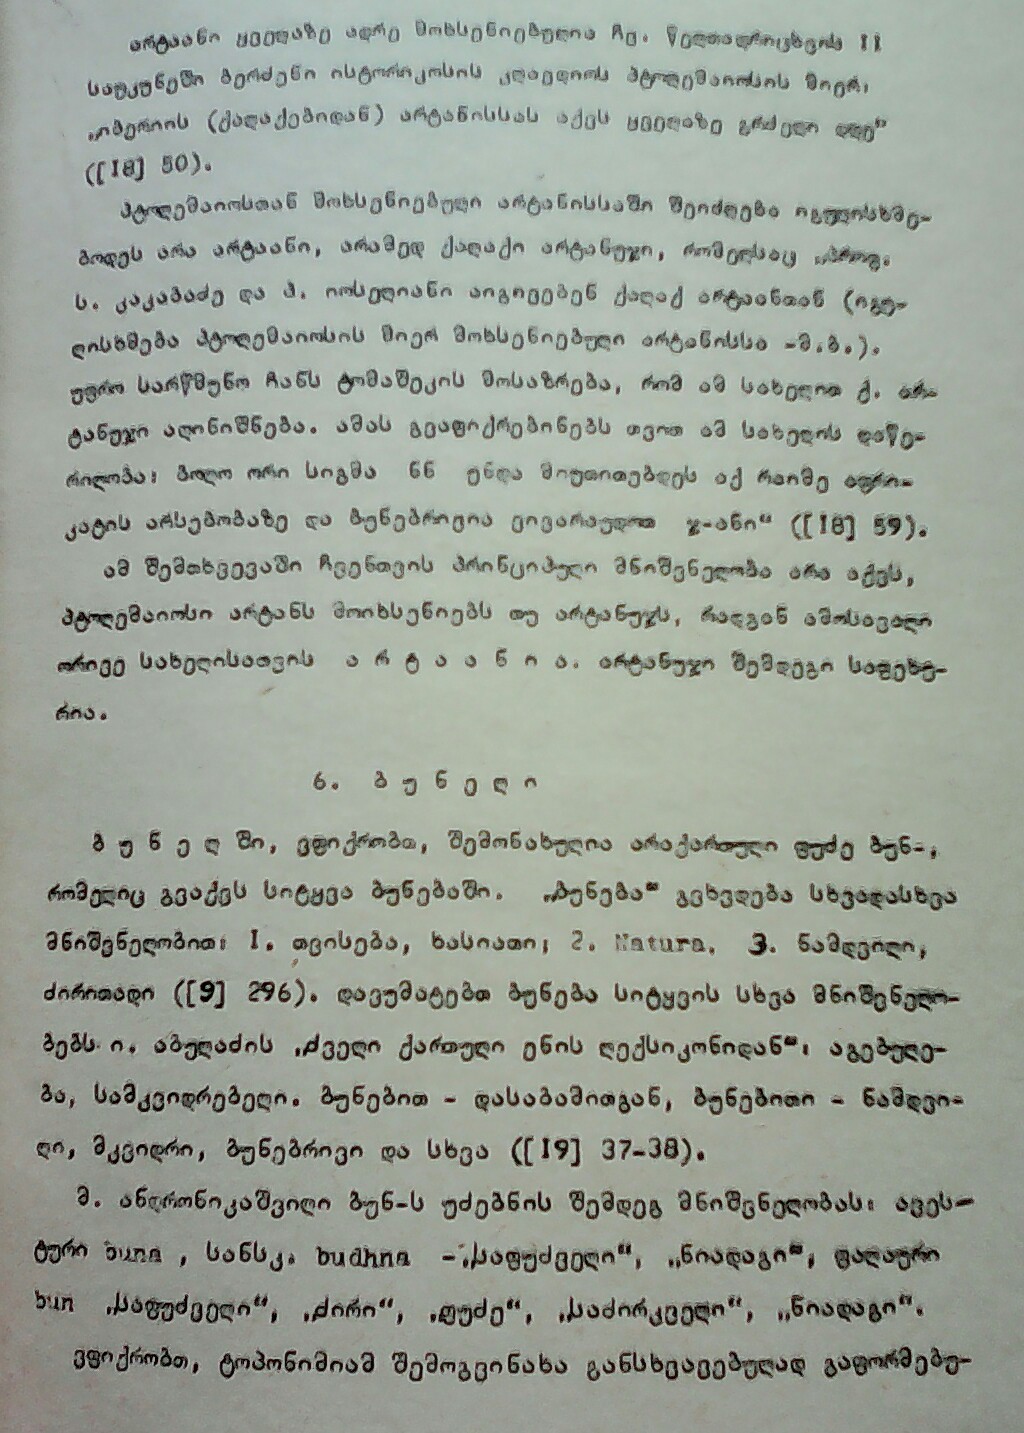 არტაანი ყველაზე ადრე მოხსენიებულია ჩვ. წელთაღრიცხვის II
საუკუნეში ბერძენი ისტორიკოსის კლავდიოს პტოლემაიოსის მიერ,
„იბერიის (ქალაქებიდან) არტანისსას აქვს ყველაზე გრძელი დღე“
([18] 50).
პტოლემაიოსთან მოხსენიებული არტანისსაში შეიძლება იგულისხმე-
ბოდეს არა არტაანი, არამედ ქალაქი არტანუჯი, რომელსაც „პროფ.
ს. კაკაბაძე და პ. იოსელიანი აიგივებენ ქალაქ არტაანთან (იგუ-
ლისხმება პტოლემაიოსის მიერ მოხსენიებული არტანისსა -მ.ბ.).
უფრო სარწმუნო ჩანს ტომაშეკის მოსაზრება, რომ ამ სახელით ქ. არ-
ტანუჯი აღინიშნება. ამას გვაფიქრებინებს თვით ამ სახელის დაწე-
რილობა: ბოლო ორი სიგმა ნნ უნდა მიუთითებდეს აქ რაიმე აფრი-
კატის არსებობაზე და ბუნებრივია ვივარაუდოთ ჯ-ანი“ ([18] 59).
ამ შემთხვევაში ჩვენთვის პრინციპული მნიშვნელობა არა აქვს,
პტოლემაიოსი არტანს მოიხსენიებს თუ არტანუჯს, რადგან ამოსავალი
ორივე სახელისათვის ა რ ტ ა ა ნ ი ა. არტანუჯი შემდეგი საფეხუ-
რია.
6. ბ უ ნ ე ლ ი
ბ უ ნ ე ლ ში, ვფიქრობთ, შემონახულია არაქართული ფუძე ბუნ-,
რომელიც გვაქვს სიტყვა ბუნებაში. „ბუნება“ გვხვდება სხვადასხვა
მნიშვნელობით: I. თვისება, ხასიათი; 2. Natura. 3. ნამდვილი,
ძირითადი ([9] 296). დავუმატებთ ბუნება სიტყვის სხვა მნიშვნელო-
ბებს ი. აბულაძის „ძველი ქართული ენის ლექსიკონიდან“: აგებულე-
ბა, სამკვიდრებელი. ბუნებით - დასაბამითგან, ბუნებითი - ნამდვი-
ლი, მკვიდრი, ბუნებრივი და სხვა ([19] 37-38).
მ. ანდრონიკაშვილი ბუნ-ს უძებნის შემდეგ მნიშვნელობას: ავეს-
ტური buna , სანსკ. budhna -„საფუძველი“, „ნიადაგი“, ფალაური
bun „საფუძველი“, „ძირი“, „ფუძე“, „საძირკველი“, „ნიადაგი“.
ვფიქრობთ, ტოპონიმიამ შემოგვინახა განსხვავებულად გაფორმებუ-